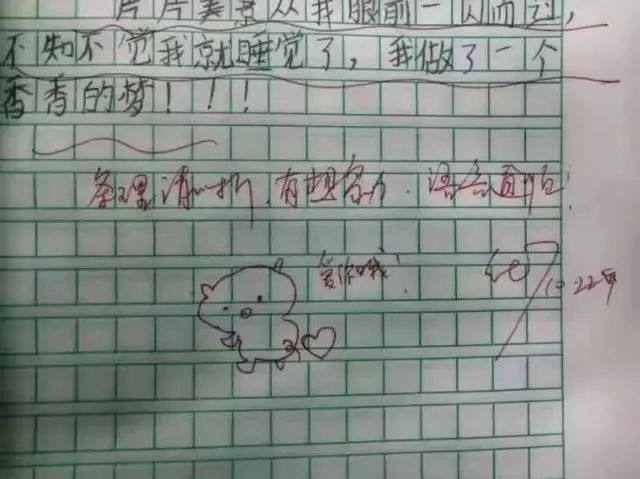 片片美景从我眼前一闪而过，
不知不觉我就睡觉了，我做了一个
香香的梦！！！
条理清晰，有想象力，语言通顺！
爱你哦！
10.22